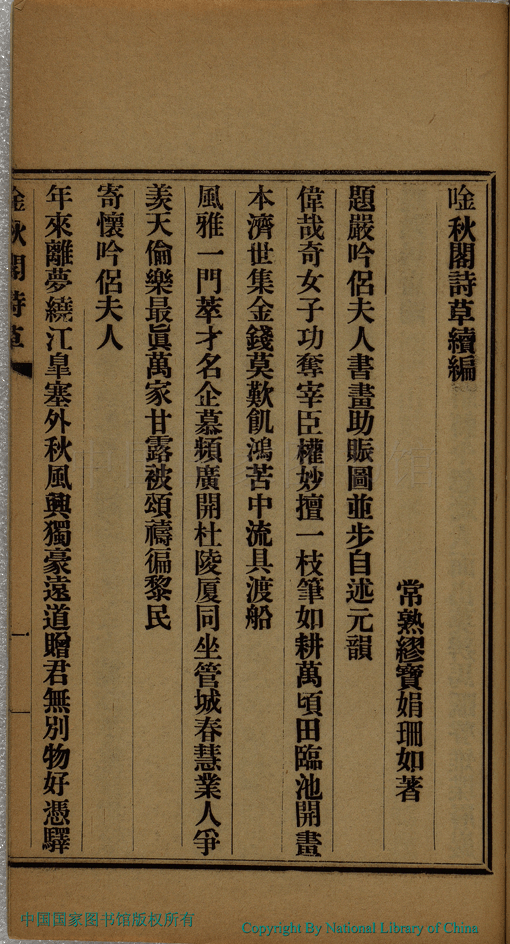 唫秋閣詩草續編
常熟繆寶娟珊如著
題嚴吟侶夫人書畫助賑圖並步自述元韻
偉哉奇女子功奪宰臣權妙擅一枝筆如耕萬頃田臨池開畫
本濟世集金錢莫歎飢鴻苦中流具渡船
風雅一門萃才名企慕頻廣開杜陵厦同坐管城春慧業人爭
羨天倫樂最眞萬家甘露被頌禱徧黎民
寄懷吟侶夫人
年來離夢繞江臯塞外秋風興獨豪遠道贈君無別物好憑驛
唫秋閣詩草
一
中国国家图书馆版权所有
Copyright By National Library of China